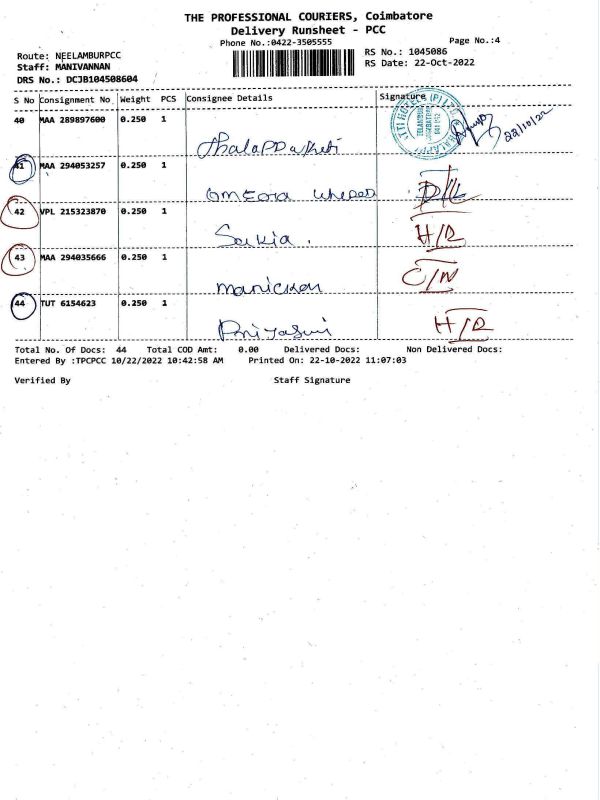 THE PROFESSIONAL COURIERS, Coimbatore
Delivery Runsheet - PCC
Phone No.:0422-3505555
Page No.:4
Route: NEELAMBURPCC
Staff: MANIVANNAN
DRS No.: DCJB104508604
RS No.: 1045086
RS Date: 22-Oct-2022
S No Consignment No Weight PCS Consignee Details Signature
40 MAA 289897600 0.250 1
22/10/22
41 MAA 294053257 0.250 1
omEga wheels D/L
42 VPL 215323870 0.250 1
Sakia. H/R
43 MAA 294035666 0.250 1
manickam C/N
44 TUT 6154623 0.250 1
H/R
Total No. Of Docs: 44 Total COD Amt: 0.00 Delivered Docs: Non Delivered Docs:
Entered By :TPCPCC 10/22/2022 10:42:58 AM Printed On: 22-10-2022 11:07:03
Verified By Staff Signature